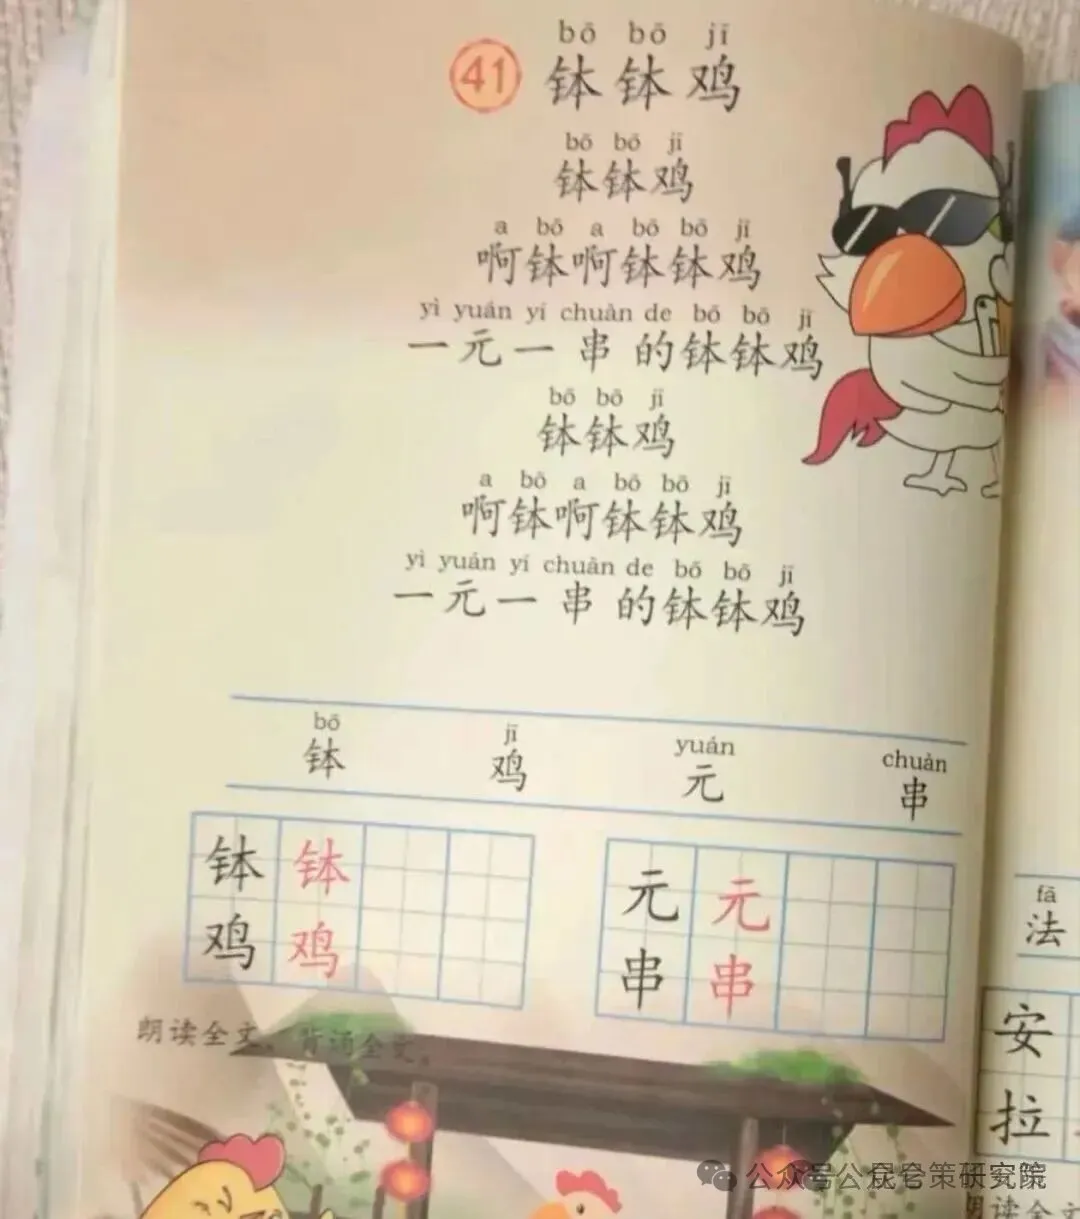 bō bō jī
41 钵钵鸡
bō bō jī
钵钵鸡
a bō a bō bō jī
啊钵啊钵钵鸡
yì yuán yí chuàn de bō bō jī
一元一串的钵钵鸡
bō bō jī
钵钵鸡
a bō a bō bō jī
啊钵啊钵钵鸡
yì yuán yí chuàn de bō bō jī
一元一串的钵钵鸡
bō jī yuán chuàn
钵 鸡 元 串
钵 钵 元 元
鸡 鸡 串 串
朗读全文。背诵全文。
fā
法
安
拉
朗读全文